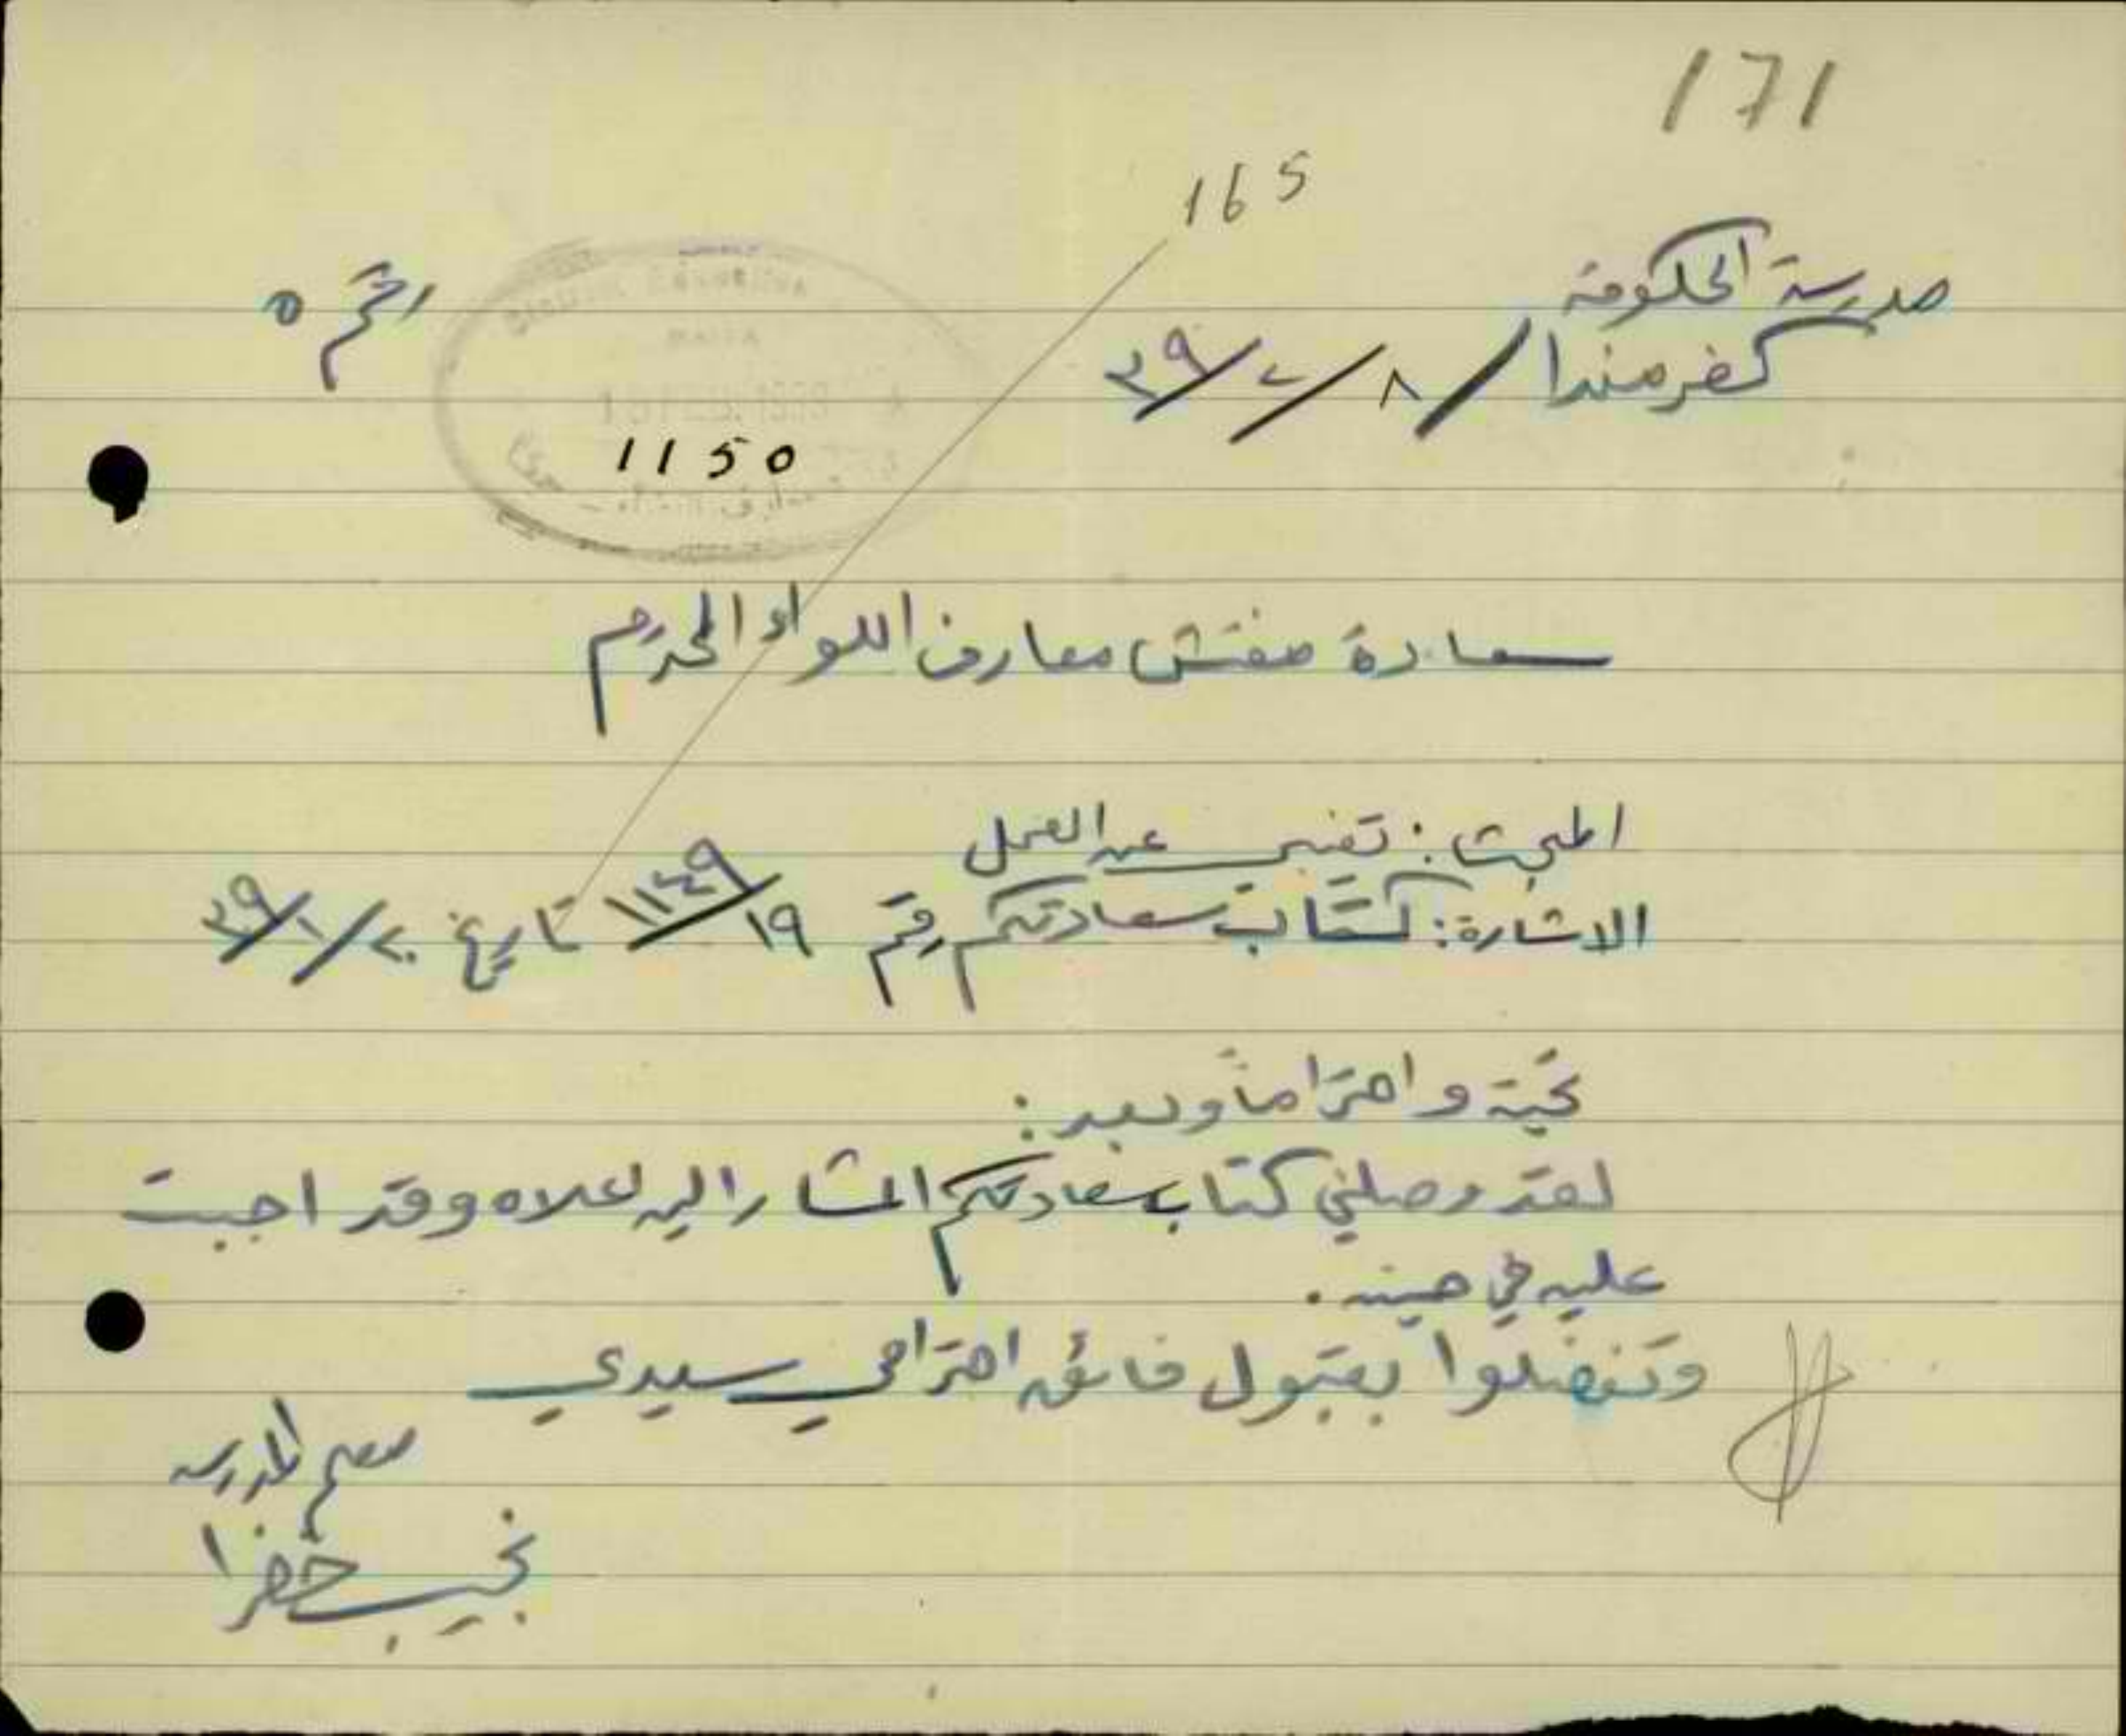 171
165
مدرسة الحكومة
كفرمندا / ٨/٢/٣٩
الرقم ٥
District Education
HAIFA
1150
سعادة مفتش معارف اللواء المحترم
المبحث: تغيب عن العمل
الاشارة: كتاب سعادتكم رقم ١٩/١١٤٩ تاريخ ٢٠/١/٣٩
تحية واحتراماً وبعد:
لقد وصلني كتاب سعادتكم المشار اليه اعلاه وقد اجبت
عليه في حينه.
وتفضلوا بقبول فائق احترامي سيدي
معلم المدرسة
نجيب خضرا